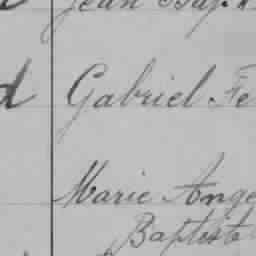 Jean Bap
d Gabriel Fe
Marie Ange
Baptiste